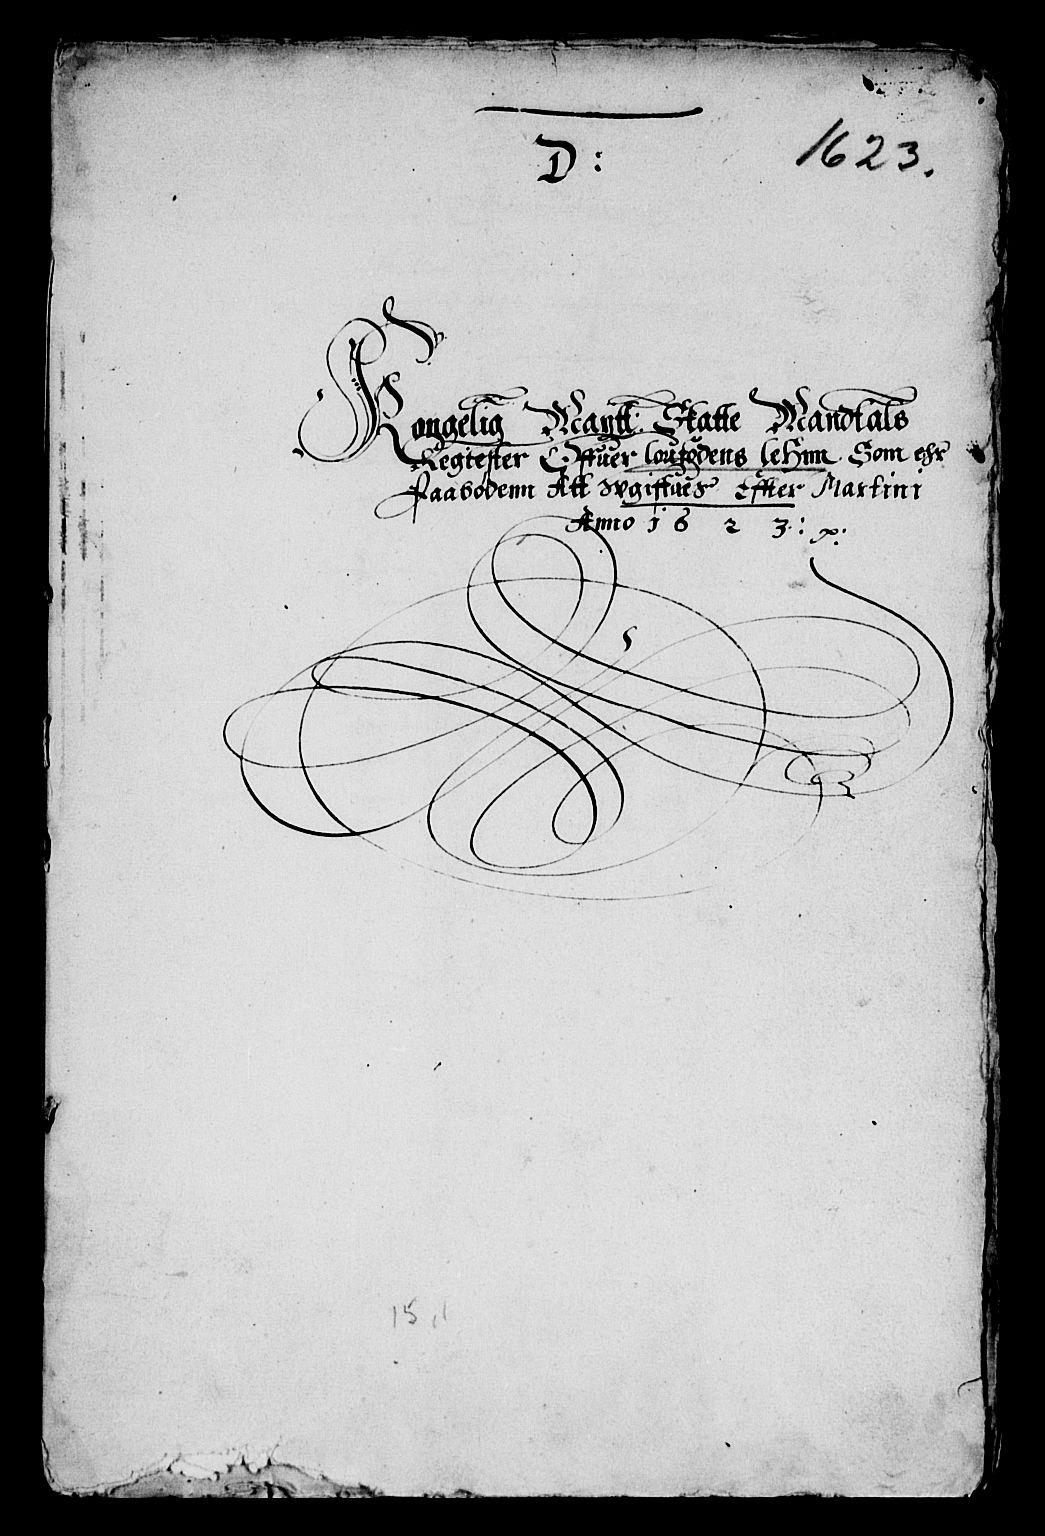 D:
1623.
Kongelig Maytt: Skatte Mandtals
Regiester Offuer loufodens lehnn Som ehr
Paabodenn Att vdgiffues Effter Martini
Anno 1 6 2 3:
15,1